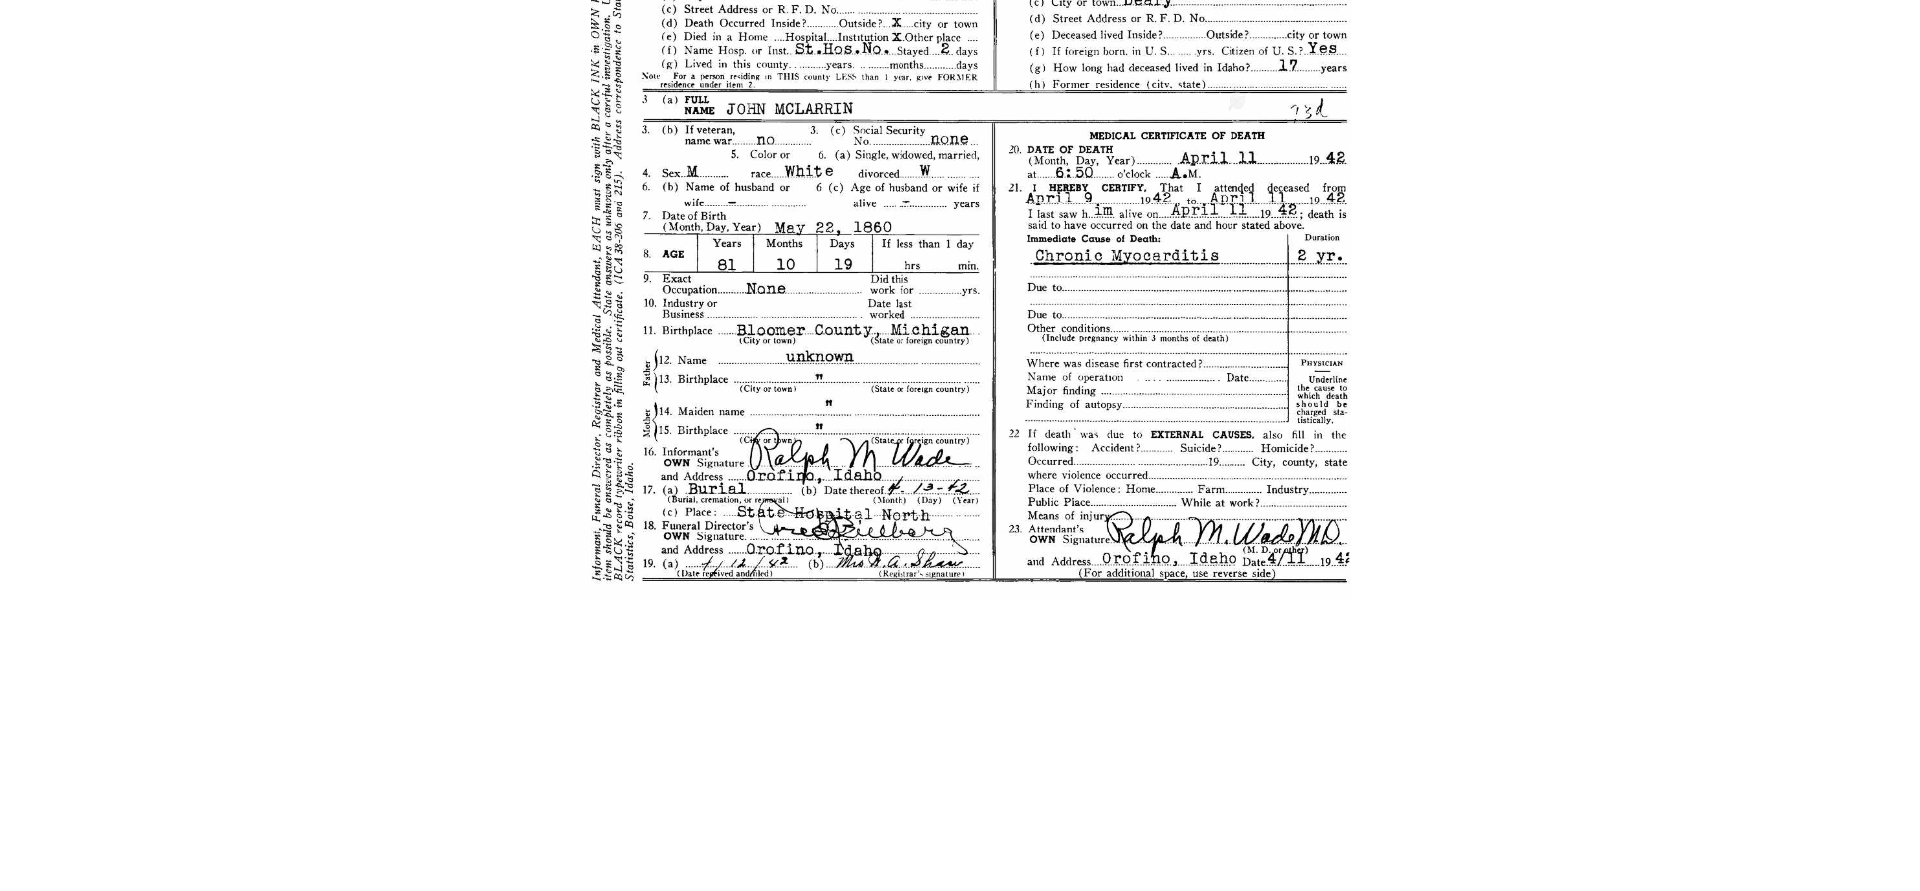 Informant, Funeral Director, Registrar and Medical Attendant, EACH must sign with BLACK INK in OWN
item should be answered as completely as possible. State answers as unknown only after a careful investigation.
BLACK record typewriter ribbon in filling out certificate. (ICA 38-206 and 215). Address correspondence to
Statistics, Boise, Idaho.
(c) Street Address or R. F. D. No.
(d) Death Occurred Inside? Outside? X city or town
(e) Died in a Home Hospital Institution X Other place
(f) Name Hosp. or Inst. St.Hos.No. Stayed 2 days
(g) Lived in this county years. months days
Note For a person residing in THIS county LESS than 1 year, give FORMER
residence under item 2.
(c) City or town Deary
(d) Street Address or R. F. D. No.
(e) Deceased lived Inside? Outside? city or town
(f) If foreign born, in U. S. yrs. Citizen of U. S.? Yes
(g) How long had deceased lived in Idaho? 17 years
(h) Former residence (city, state)
3 (a) FULL
NAME JOHN MCLARRIN
93d
3. (b) If veteran, 3. (c) Social Security
name war no No. none
5. Color or 6. (a) Single, widowed, married,
4. Sex M race White divorced W
6. (b) Name of husband or 6 (c) Age of husband or wife if
wife – alive – years
7. Date of Birth
(Month, Day, Year) May 22, 1860
8. AGE Years Months Days If less than 1 day
81 10 19 hrs min.
9. Exact Did this
Occupation None work for yrs.
10. Industry or Date last
Business worked
11. Birthplace Bloomer County, Michigan
(City or town) (State or foreign country)
Father
12. Name unknown
13. Birthplace "
(City or town) (State or foreign country)
Mother
14. Maiden name "
15. Birthplace "
(City or town) (State or foreign country)
16. Informant's
OWN Signature Ralph M Wade
and Address Orofino, Idaho
17. (a) Burial (b) Date thereof 4-13-42
(Burial, cremation, or removal) (Month) (Day) (Year)
(c) Place: State Hospital North
18. Funeral Director's
OWN Signature.
and Address Orofino, Idaho
19. (a) 4/12/42 (b) Mrs A. Shaw
(Date received and filed) (Registrar's signature)
MEDICAL CERTIFICATE OF DEATH
20. DATE OF DEATH
(Month, Day, Year) April 11 19 42
at 6:50 o'clock A.M.
21. I HEREBY CERTIFY, That I attended deceased from
April 9 1942 to April 11 19 42
I last saw h im alive on April 11 19 42; death is
said to have occurred on the date and hour stated above.
Immediate Cause of Death: Duration
Chronic Myocarditis 2 yr.
Due to
Due to
Other conditions
(Include pregnancy within 3 months of death)
Where was disease first contracted?
Name of operation Date
Major finding
Finding of autopsy
PHYSICIAN
Underline
the cause to
which death
should be
charged sta-
tistically.
22 If death was due to EXTERNAL CAUSES, also fill in the
following: Accident? Suicide? Homicide?
Occurred 19 City, county, state
where violence occurred
Place of Violence: Home Farm Industry
Public Place While at work?
Means of injury
23. Attendant's
OWN Signature Ralph M. Wade M.D.
(M. D. or other)
and Address Orofino, Idaho Date 4/11 19 42
(For additional space, use reverse side)